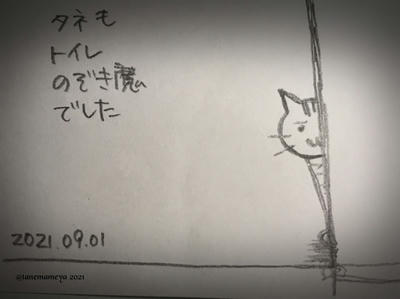 タネも
トイレ
のぞき魔
でした
2021.09.01
@tanemameya 2021